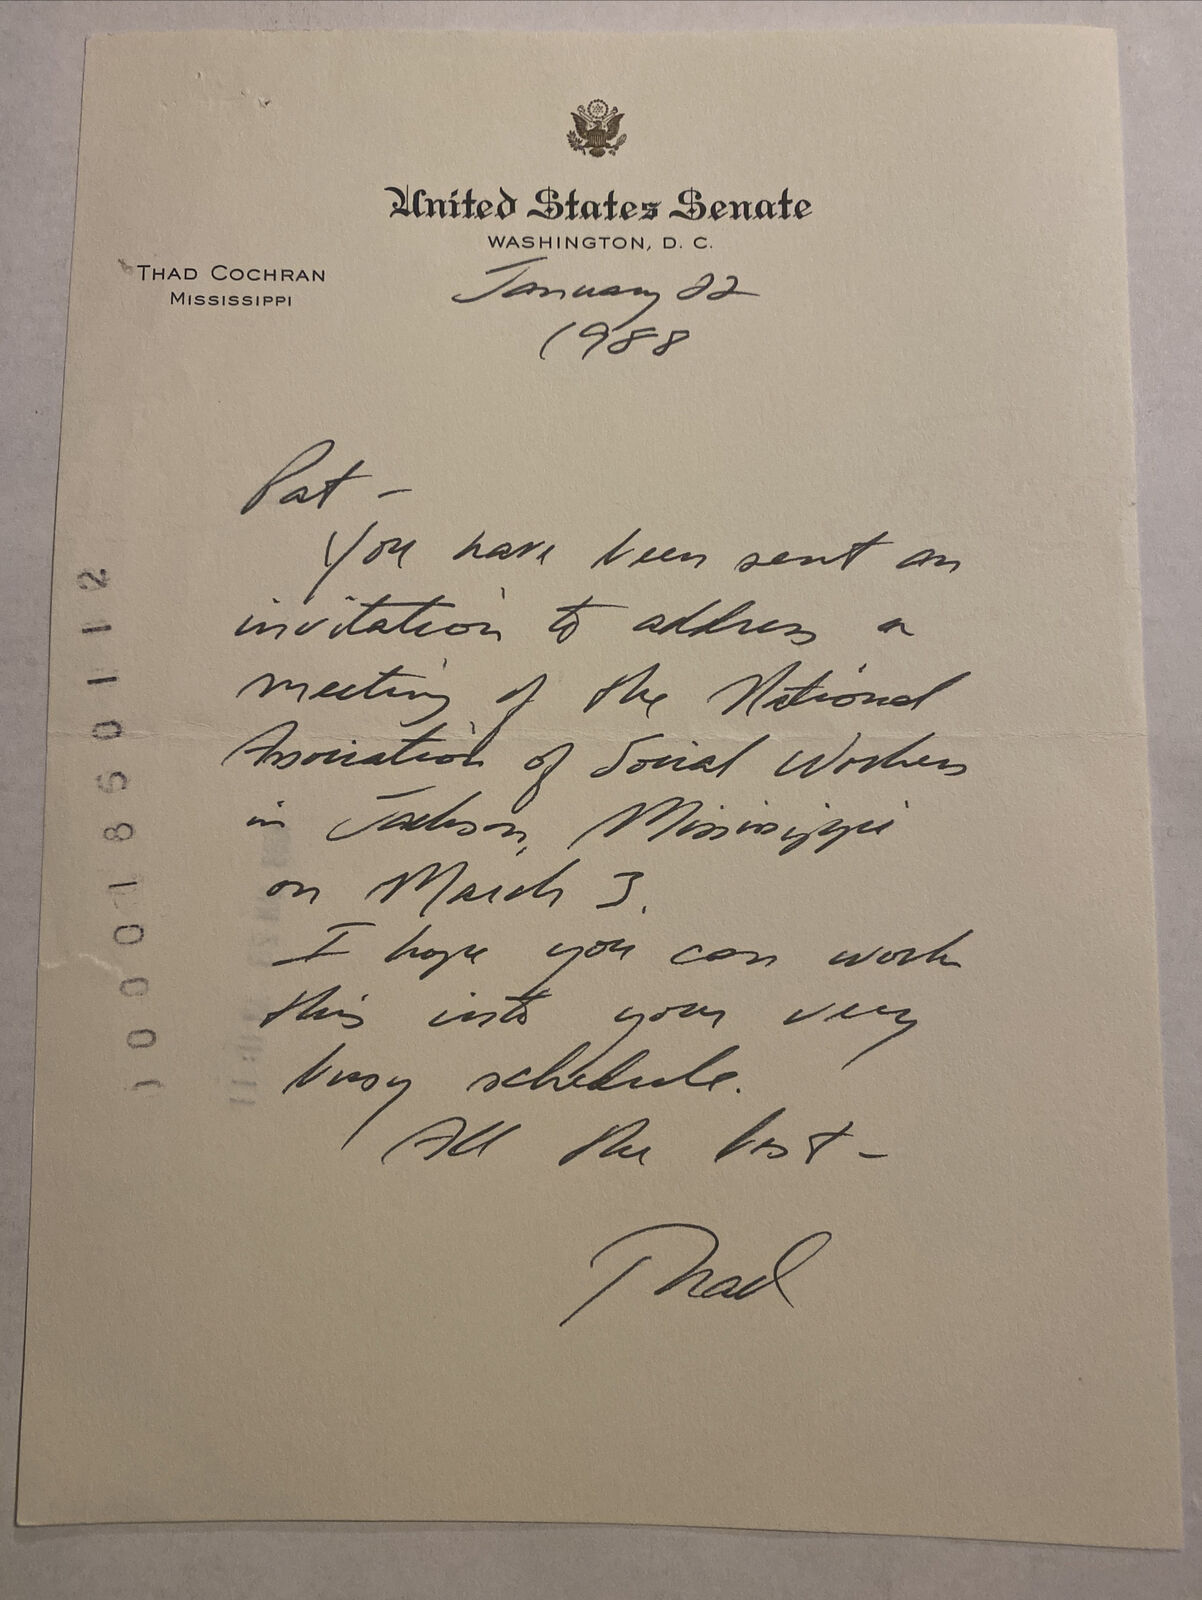 United States Senate
WASHINGTON, D. C.
THAD COCHRAN
MISSISSIPPI
January 22
1988
Pat -
You have been sent an
invitation to address a
meeting of the National
Association of Social Workers
in Jackson, Mississippi
on March 3.
I hope you can work
this into your very
busy schedule.
All the best -
Thad